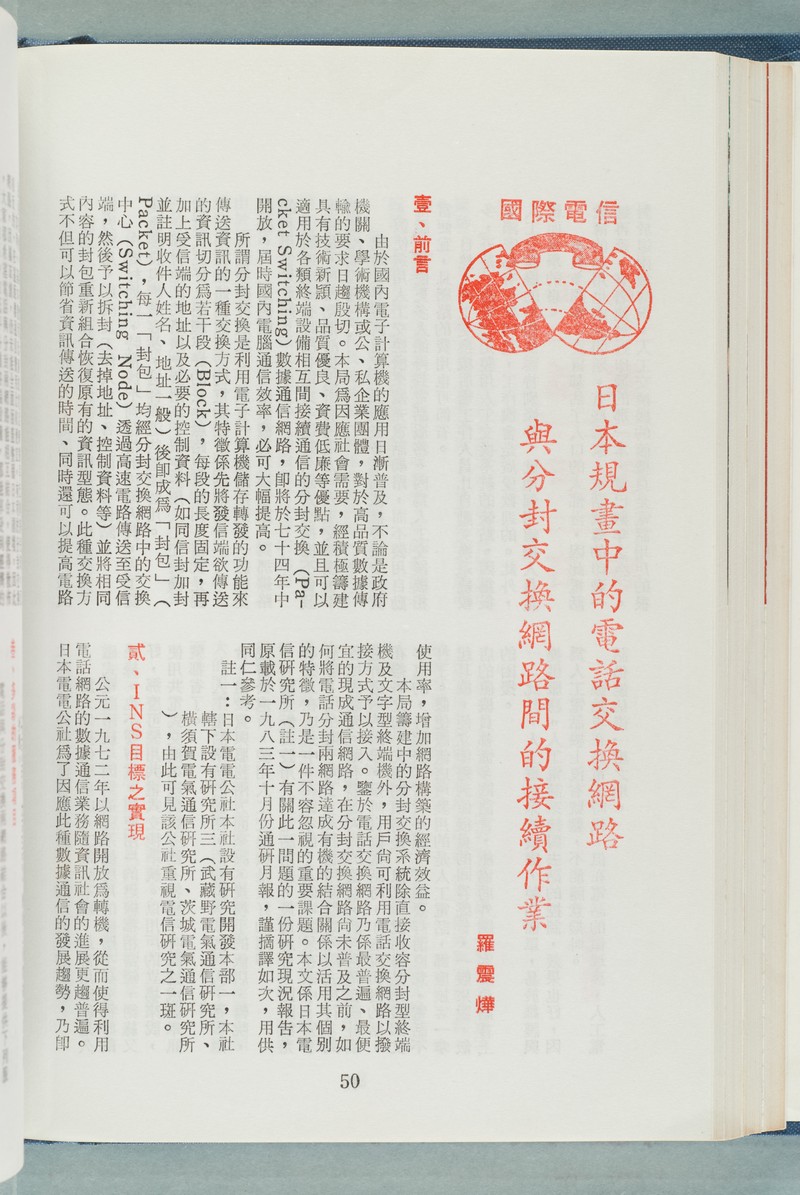 國際電信
日本規畫中的電話交換網路
與分封交換網路間的接續作業
羅震燁
壹、前言
由於國內電子計算機的應用日漸普及，不論是政府
機關、學術機構或公、私企業團體，對於高品質數據傳
輸的要求日趨殷切。本局爲因應社會需要，經積極籌建
具有技術新穎、品質優良、資費低廉等優點，並且可以
適用於各類終端設備相互間接續通信的分封交換（Pa-
cket Switching）數據通信網路，卽將於七十四年中
開放，屆時國內電腦通信效率，必可大幅提高。
所謂分封交換是利用電子計算機儲存轉發的功能來
傳送資訊的一種交換方式，其特徵係先將發信端欲傳送
的資訊切分爲若干段（Block），每段的長度固定，再
加上受信端的地址以及必要的控制資料（如同信封加封
並註明收件人姓名、地址一般）後卽成爲「封包」（
Packet），每一「封包」均經分封交換網路中的交換
中心（Switching Node）透過高速電路傳送至受信
端，然後予以拆封（去掉地址、控制資料等）並將相同
內容的封包重新組合恢復原有的資訊型態。此種交換方
式不但可以節省資訊傳送的時間、同時還可以提高電路
使用率，增加網路構築的經濟效益。
本局籌建中的分封交換系統除直接收容分封型終端
機及文字型終端機外，用戶尚可利用電話交換網路以撥
接方式予以接入。鑒於電話交換網路乃係最普遍、最便
宜的現成通信網路，在分封交換網路尚未普及之前，如
何將電話分封兩網路達成有機的結合關係以活用其個別
的特徵，乃是一件不容忽視的重要課題。本文係日本電
信硏究所（註一）有關此一問題的一份硏究現況報告，
原載於一九八三年十月份通硏月報，謹摘譯如次，用供
同仁參考。
註一：日本電電公社本社設有硏究開發本部一，本社
轄下設有硏究所三（武藏野電氣通信硏究所、
橫須賀電氣通信硏究所、茨城電氣通信硏究所
），由此可見該公社重視電信硏究之一斑。
貳、INS目標之實現
公元一九七二年以網路開放爲轉機，從而使得利用
電話網路的數據通信業務隨資訊社會的進展更趨普遍。
日本電電公社爲了因應此種數據通信的發展趨勢，乃卽
50